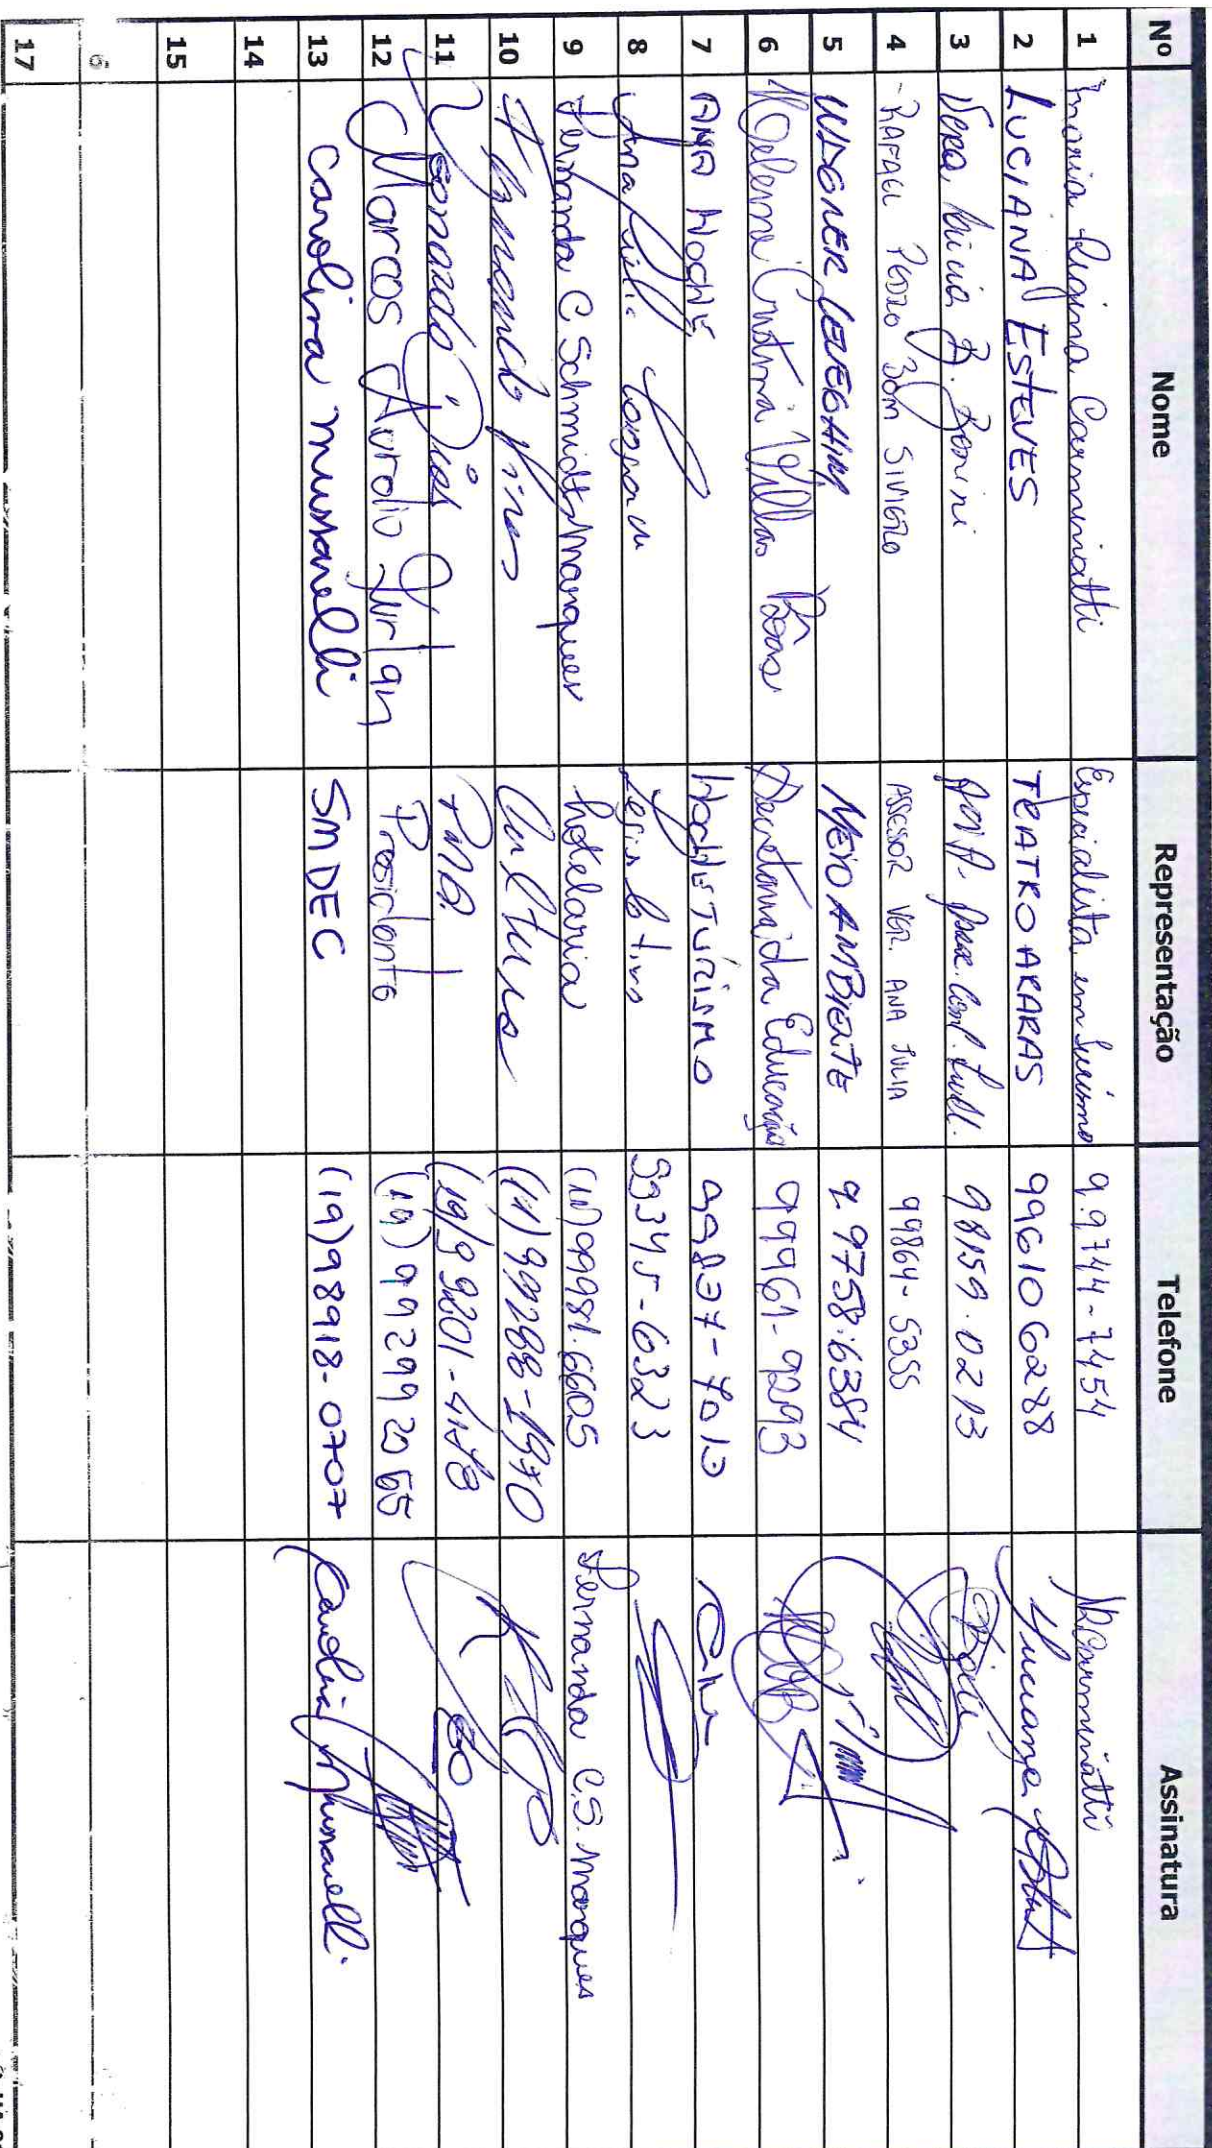 Nº Nome Representação Telefone Assinatura
1 Maria Regina Carminatti Especialista em Turismo 9.9744-7454 Carminatti
2 LUCIANA ESTEVES TEATRO ARARAS 996106288 Luciana
3 Vera Lúcia B. Bonini 98159.0213
4 RAFAEL PEDRO BOM SIMIERO ASSESSOR VER. ANA JULIA 99864-5355
5 WAGNER MEIO AMBIENTE 9.9758.6384
6 Cristina Villas Bôas Secretaria da Educação 99961-9293
7 ANA HOCHE HOCHE TURISMO 99837-7010
8 Ana Legislativo 99345-6323
9 Fernanda C Schmidt Marques hotelaria 99981.6605 Fernanda C.S. Marques
10 Fernando Pires Cultura (11) 99288-1970
11 Leonardo Dias PMA (19) 99201-4178
12 Marcos Aurélio Presidente (19) 992992065
13 Carolina Mussarelli SMDEC (19) 98918-0707 Carolina Mussarelli
14
15
17